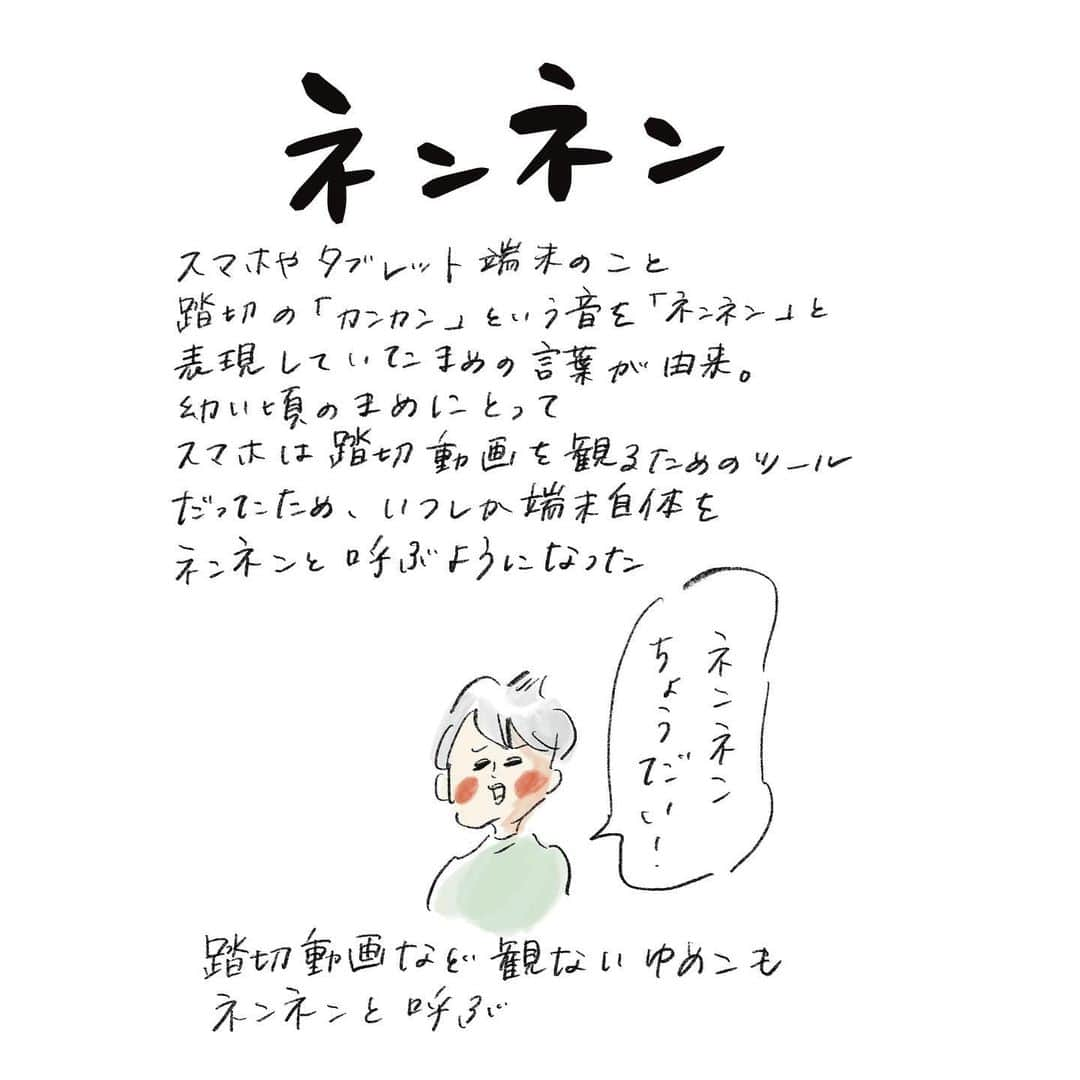 ネンネン
スマホやタブレット端末のこと
踏切の「カンカン」という音を「ネンネン」と
表現していたまめの言葉が由来。
幼い頃のまめにとって
スマホは踏切動画を観るためのツール
だったため、いつしか端末自体を
ネンネンと呼ぶようになった
ネンネン
ちょうだい!
踏切動画など観ないゆめこも
ネンネンと呼ぶ